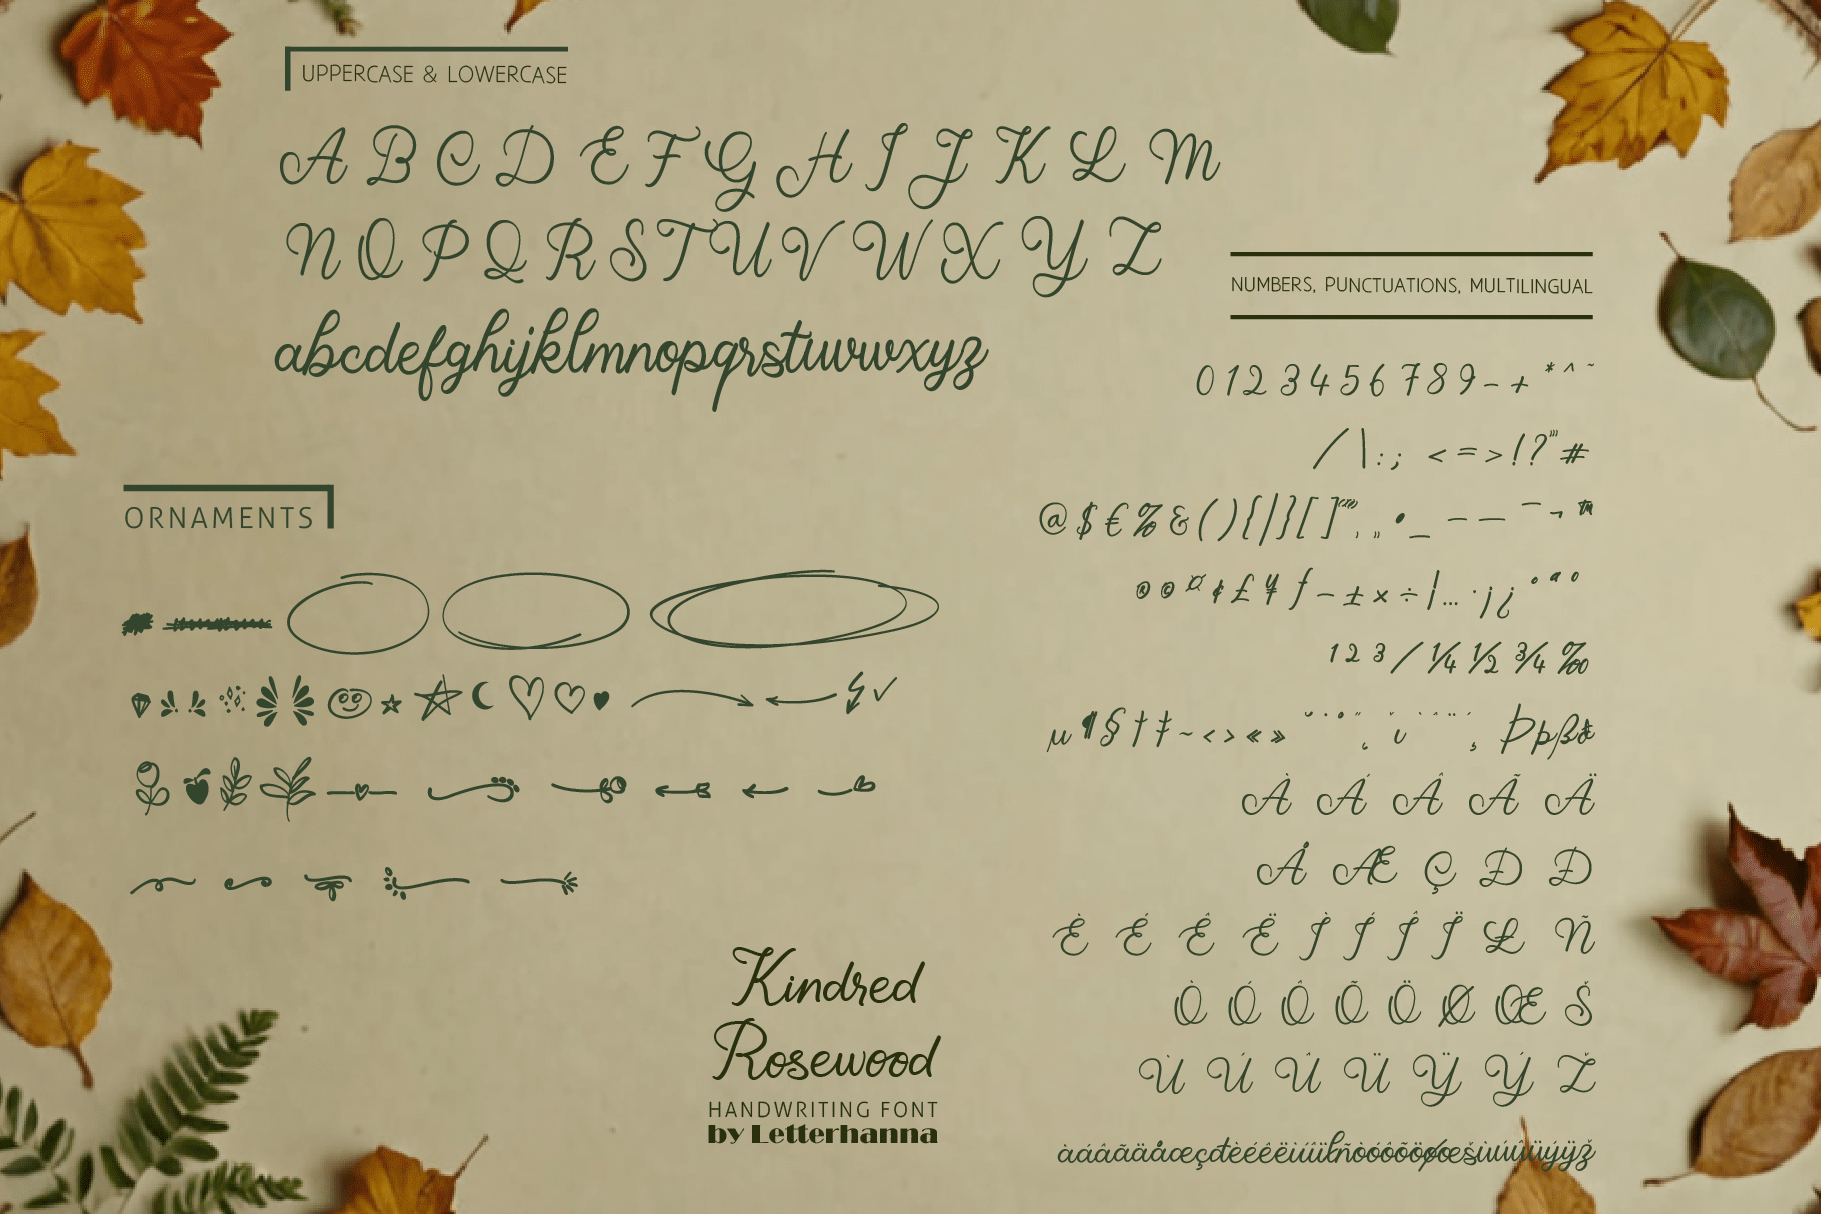 UPPERCASE & LOWERCASE
A B C D E F G H I J K L M
N O P Q R S T U V W X Y Z
abcdefghijklmnopqrstuvwxyz
NUMBERS, PUNCTUATIONS, MULTILINGUAL
0 1 2 3 4 5 6 7 8 9 - + * ^ ~
/ \ : ; < = > ! ? " #
@ $ € % & ( ) { | } [ ] ‚ „ • _ – — ¯ ¬ ™
® © ¤ ¢ £ ¥ ƒ − ± × ÷ | … · ¡ ¿ ° ª º
¹ ² ³ ⁄ ¼ ½ ¾ ‰
µ ¶ § † ‡ ~ ‹ › « » Þ þ ß
À Á Â Ã Ä
Å Æ Ç Ð Đ
È É Ê Ë Ì Í Î Ï Ł Ñ
Ò Ó Ô Õ Ö Ø Œ Š
Ù Ú Û Ü Ÿ Ý Ž
àáâãäåæçđèéêëìíîïłñòóôõöøœšùúûüýÿž
ORNAMENTS
Kindred
Rosewood
HANDWRITING FONT
by Letterhanna